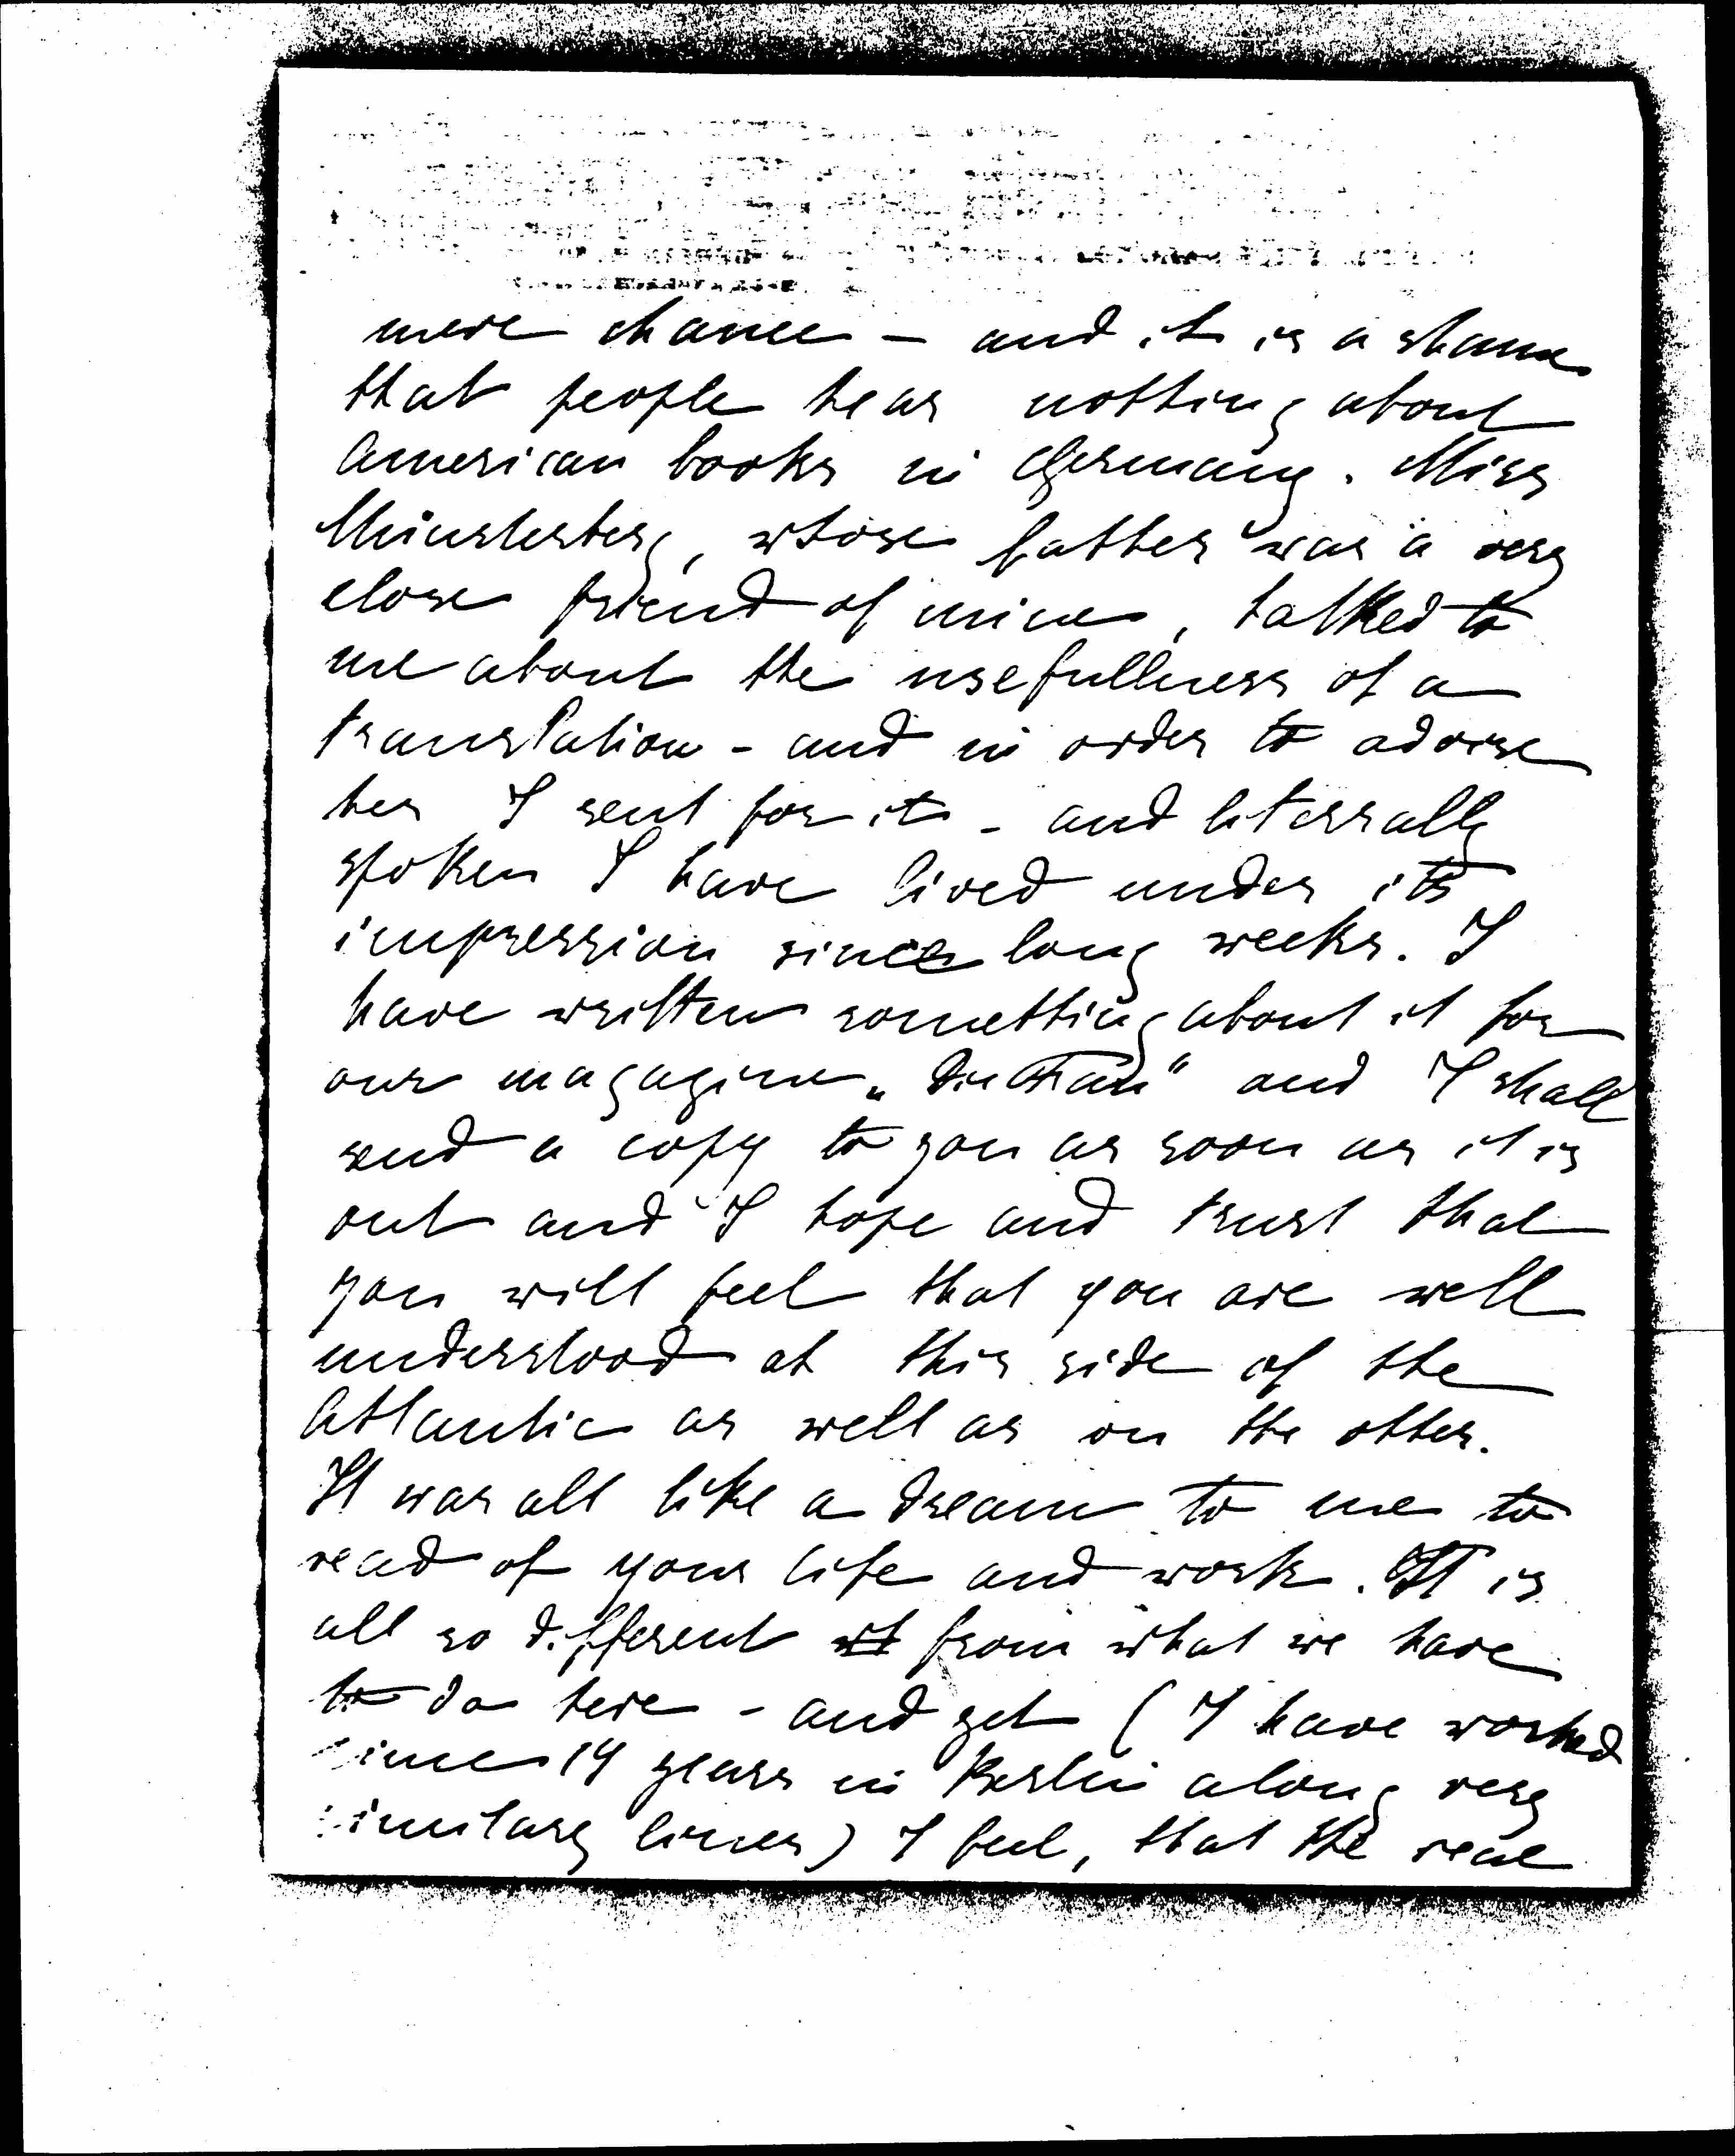 mere chance – and it is a shame
that people hear nothing about
American books in Germany. Miss
Münsterberg, whose father was a very
close friend of mine, talked to
me about the usefullness of a
translation - and in order to advise
her I sent for it - and literrally
spoken I have lived under its
impression since long weeks. I
have written something about it for
our magazine „Die Frau" and I shall
send a copy to you as soon as it is
out and I hope and trust that
you will feel that you are well
understood at this side of the
Atlantic as well as on the other.
It was all like a dream to me to
read of your life and work. It is
all so different from what we have
to do here - and yet (I have worked
since 14 years in Berlin along very
similary lines) I feel, that the real